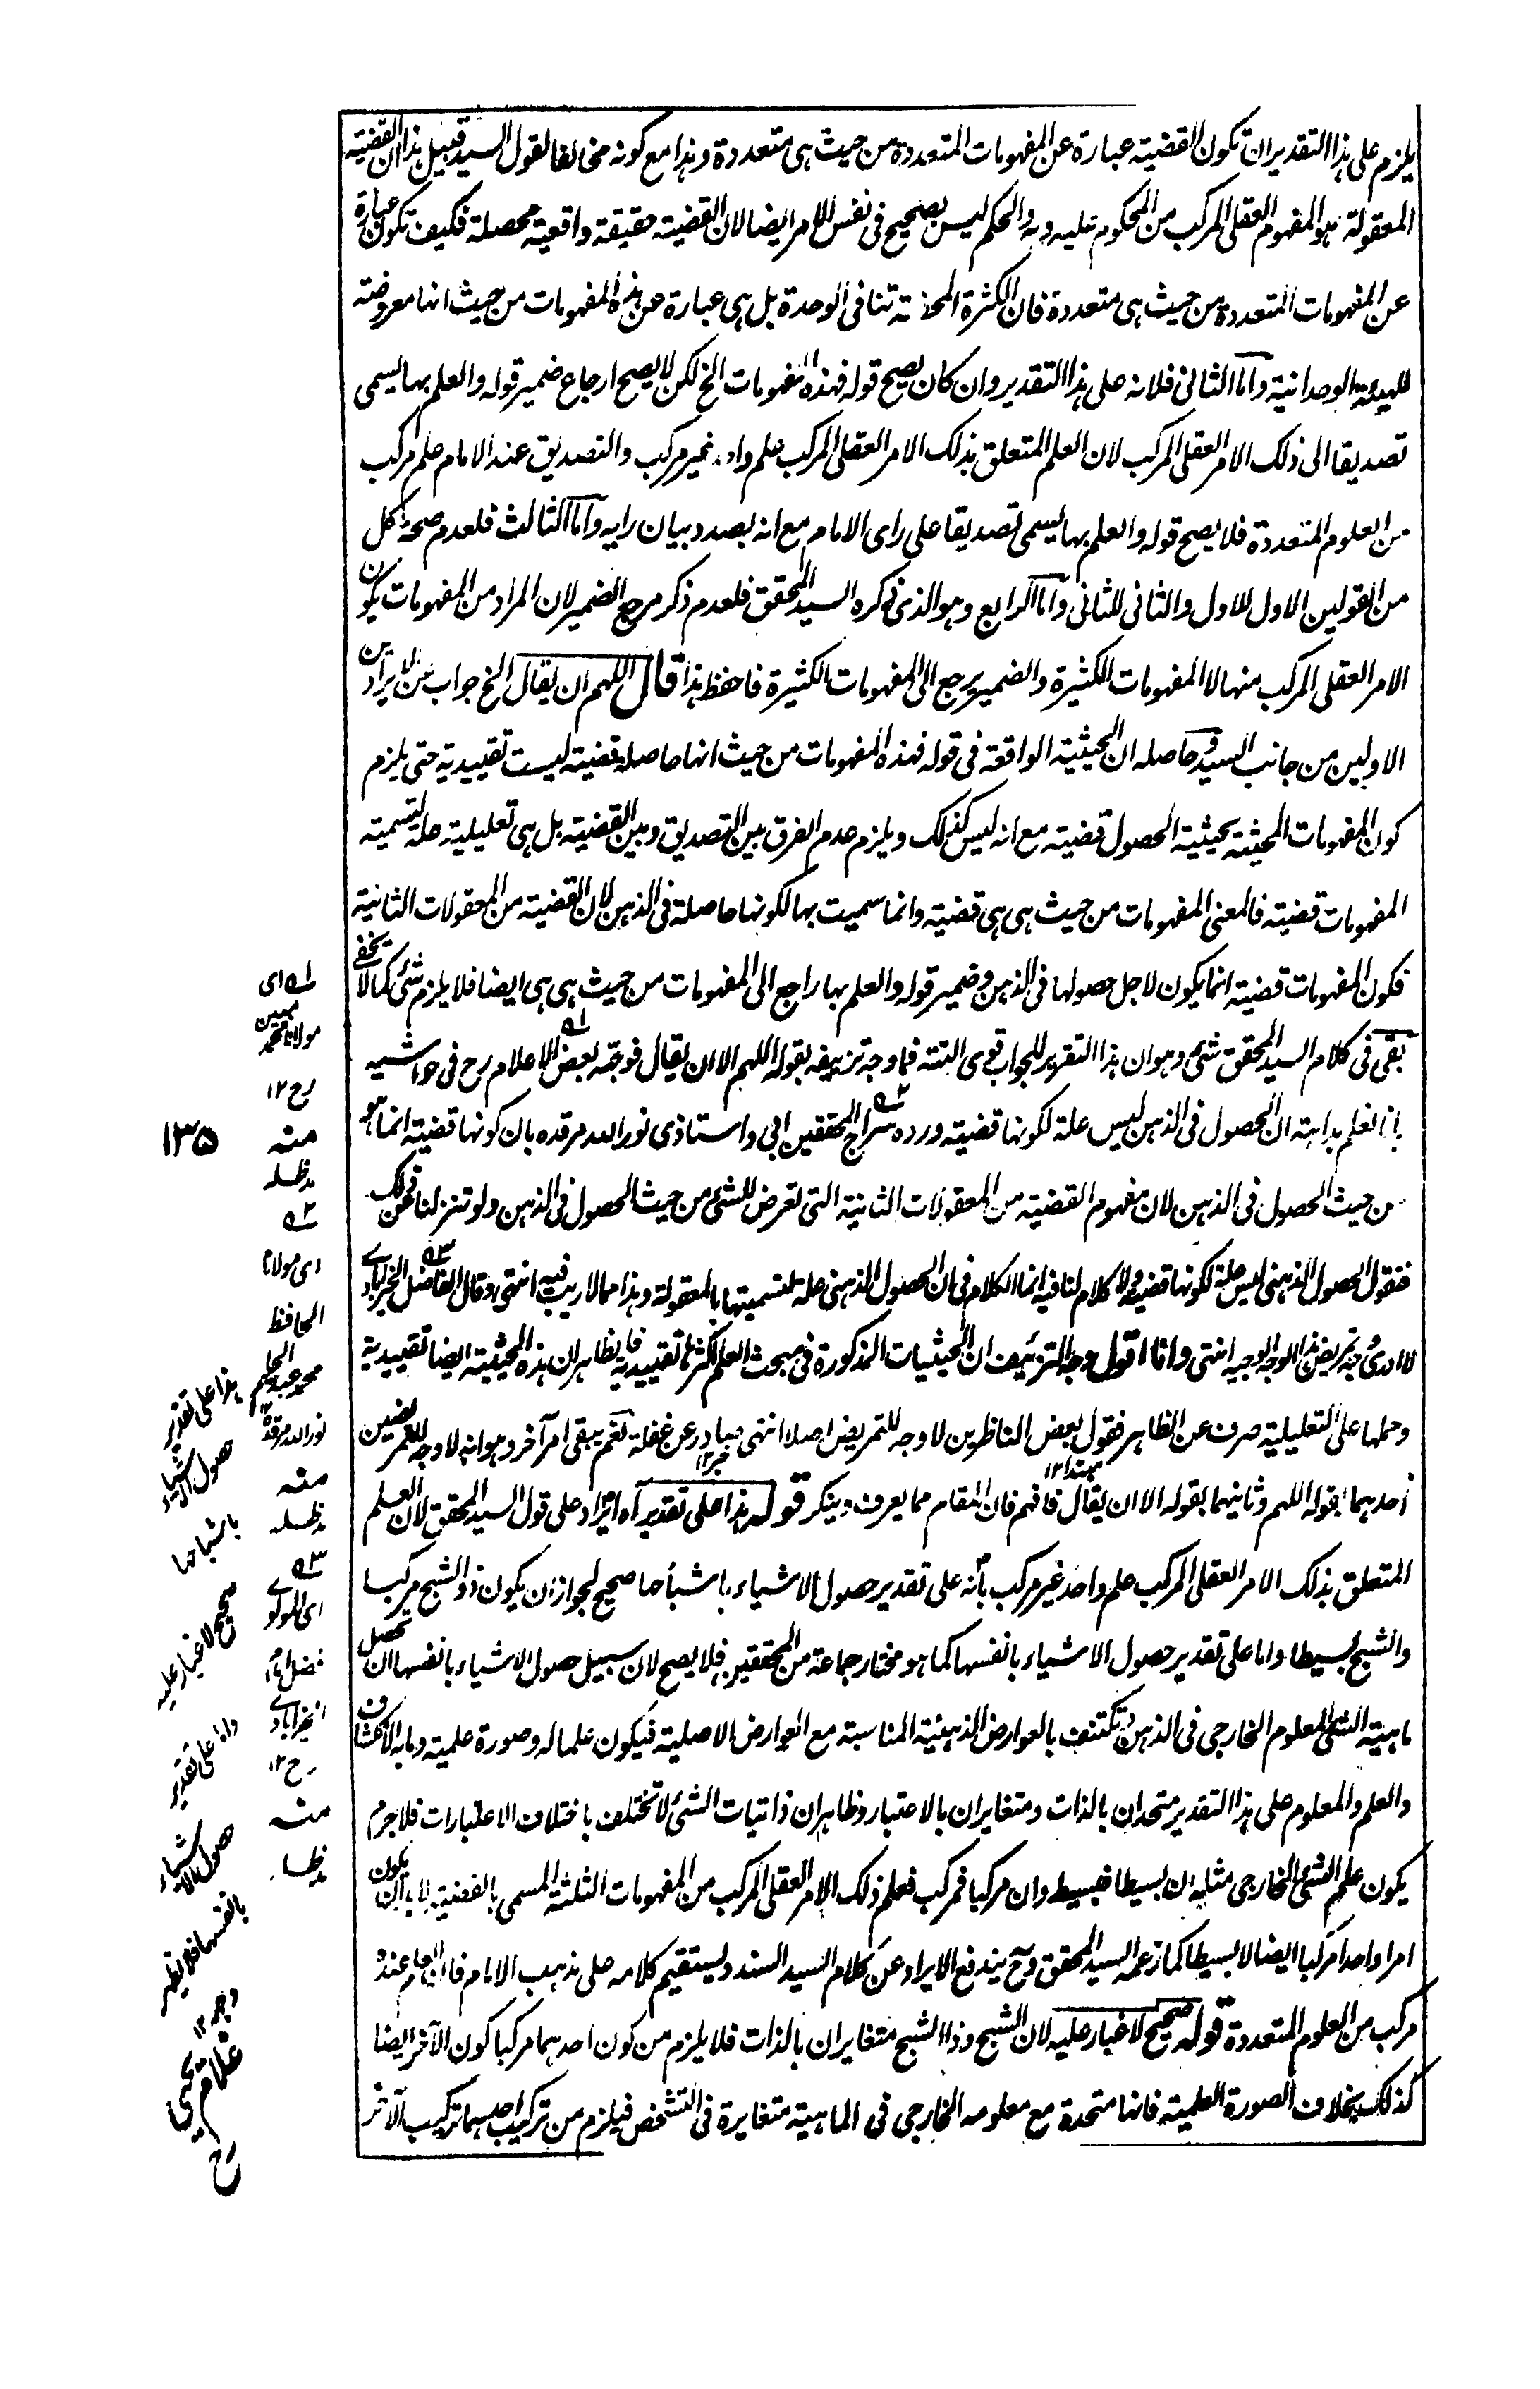 يلزم على هذا التقدير ان تكون القضية عبارة عن المفهومات المتعددة من حيث هى متعددة وهذا مع كونه مخالفا لقول السيد قبيل هذا ان القضية
المعقولة هو المفهوم العقلى المركب من المحكوم عليه وبه والحكم ليس بصحيح فى نفس الامر ايضا لان القضية حقيقة واقعية محصلة فكيف تكون عبارة
عن المفهومات المتعددة من حيث هى متعددة فان الكثرة المحضة تنافى الوحدة بل هى عبارة عن هذه المفهومات من حيث انها معروضة
للهيئة الوحدانية واما الثانى فلانه على هذا التقدير وان كان يصح قوله فهذه المفهومات الخ لكن لا يصح ارجاع ضمير قوله والعلم بها يسمى
تصديقا الى ذلك الامر العقلى المركب لان العلم المتعلق بذلك الامر العقلى المركب علم واحد غير مركب والتصديق عند الامام علم مركب
من العلوم المتعددة فلا يصح قوله والعلم بها يسمى تصديقا على راى الامام مع انه بصدد بيان رايه واما الثالث فلعدم صحة كل
من القولين الاول للاول والثانى للثانى واما الرابع وهو الذى ذكره السيد المحقق فلعدم ذكر مرجع الضمير لان المراد من المفهومات يكون
الامر العقلى المركب منها لا المفهومات الكثيرة والضمير يرجع الى المفهومات الكثيرة فاحفظ هذا قال اللهم ان يقال الخ جواب عن الايرادين
الاولين من جانب السيد وحاصله ان الحيثية الواقعة فى قوله فهذه المفهومات من حيث انها حاصلة قضية ليست تقييدية حتى يلزم
كون المفهومات المحيثة بحيثية الحصول قضية مع انه ليس كذلك ويلزم عدم الفرق بين التصديق وبين القضية بل هى تعليلية علة لتسمية
المفهومات قضية فالمعنى المفهومات من حيث هى هى قضية وانما سميت بها لكونها حاصلة فى الذهن لان القضية من المعقولات الثانية
فكون المفهومات قضية انما يكون لاجل حصولها فى الذهن وضمير قوله والعلم بها راجع الى المفهومات من حيث هى هى ايضا فلا يلزم شئ كما لا يخفى
بقى فى كلام السيد المحقق شئ وهو ان هذا التقرير للجواب قوى البتة فما وجه تزييفه بقوله اللهم الا ان يقال فوجهه بعض الاعلام رح فى حواشيه
بانا نعلم بداهة ان الحصول فى الذهن ليس علة لكونها قضية ورده سراج المحققين ابى واستاذى نور الله مرقده بان كونها قضية انما هو
من حيث الحصول فى الذهن لان مفهوم القضية من المعقولات الثانية التى تعرض للشئ من حيث الحصول فى الذهن ولو تنزلنا عن ذلك
فنقول الحصول الذهنى ليس علة لكونها قضية ولا كلام لنا فيه انما الكلام فى ان الحصول الذهنى علة لتسميتها بالمعقولة وهذا مما لا ريب فيه انتهى وقال الفاضل الخيرآبادى
لا ادرى وجه تمريض هذا الوجه الوجيه انتهى وانا اقول وجه التزئيف ان الحيثيات المذكورة فى مبحث العلم اكثرها تقييدية فالظاهر ان هذه الحيثية ايضا تقييدية
وحملها على التعليلية صرف عن الظاهر فقول بعض الناظرين لا وجه للتمريض اصلا انتهى صادر عن غفلة نعم يبقى امر آخر وهو انه لا وجه للتمريضين
احدهما بقوله اللهم وثانيهما بقوله الا ان يقال فافهم فان المقام مما يعرف وينكر قوله هذا على تقدير آه ايراد على قول السيد المحقق لان العلم
المتعلق بذلك الامر العقلى المركب علم واحد غير مركب بأنه على تقدير حصول الاشياء باشباحها صحيح لجواز ان يكون ذو الشبح مركبا
والشبح بسيطا واما على تقدير حصول الاشياء بانفسها كما هو مختار جماعة من المحققين فلا يصح لان سبيل حصول الاشياء بانفسها ان تحصل
ماهية الشئ المعلوم الخارجى فى الذهن وتكتنف بالعوارض الذهنية المناسبة مع العوارض الاصلية فيكون علما له وصورة علمية وما به الانكشاف
والعلم والمعلوم على هذا التقدير متحدان بالذات ومتغايران بالاعتبار وظاهر ان ذاتيات الشئ لا تختلف باختلاف الاعتبارات فلا جرم
يكون علم الشئ الخارجى مثله ان بسيطا فبسيط وان مركبا فمركب فعلم ذلك الامر العقلى المركب من المفهومات الثلثة المسمى بالقضية لا بد ان يكون
امرا واحدا مركبا ايضا لا بسيطا كما زعمه السيد المحقق وح يندفع الايراد عن كلام السيد السند ويستقيم كلامه على مذهب الامام فان العلم عنده
مركب من العلوم المتعددة قوله صحيح لا غبار عليه لان الشبح وذا الشبح متغايران بالذات فلا يلزم من كون احدهما مركبا كون الآخر ايضا
كذلك بخلاف الصورة العلمية فانها متحدة مع معلومه الخارجى فى الماهية متغايرة فى التشخص فيلزم من تركيب احدهما تركيب الآخر
خبر ١٢
مبتدا ١٢
١٣٥
له اى
مولانا محمد مبين
رح ١٢
منه
مدظله
٢ه
اى مولانا
الحافظ
محمد عبد الحليم
نور الله مرقده ١٢
منه
مدظله
٣ه
اى المولوى
فضل امام
الخيرآبادى
رح ١٢
منه
مدظله
هذا على تقدير
حصول الاشياء
باشباحها
صحيح لا غبار عليه
واما على تقدير
حصول الاشياء
بانفسها فلم يظهر
وجهه ١٢
غلام يحيى
رح